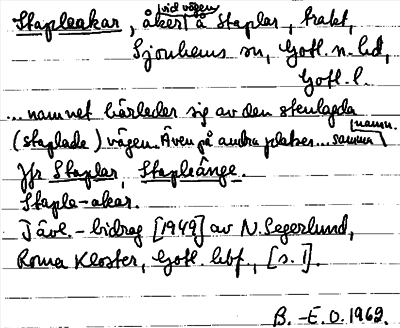 vid vägen
Stapleakar, åker å Staplar, trakt,
Sjonhems sn, Gotl. n. hd,
Gotl. l.
... namnet härleder sig av den stenlagda
(staplade) vägen. Även på andra platser... samma namn.
Jfr Staplar, Stapleänge.
Staple-akar.
Tävl.-bidrag [1949] av N. Segerlund,
Roma Kloster, Gotl. hbf, [s. 1].
B.-E. O. 1962.